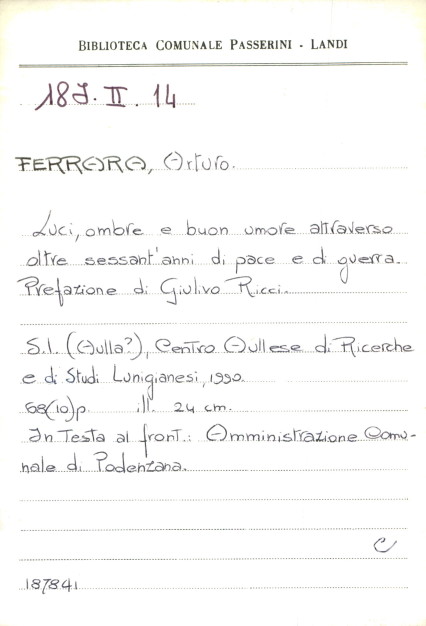 BIBLIOTECA COMUNALE PASSERINI - LANDI
18J.II.14
FERRARA, Arturo.
Luci, ombre e buon umore attraverso
oltre sessant'anni di pace e di guerra.
Prefazione di Giulivo Ricci.
S.l. (Aulla?), Centro Aullese di Ricerche
e di Studi Lunigianesi, 1990.
68(10)p. ill. 24 cm.
In testa al front.: Amministrazione Comu-
nale di Podenzana.
C
187841